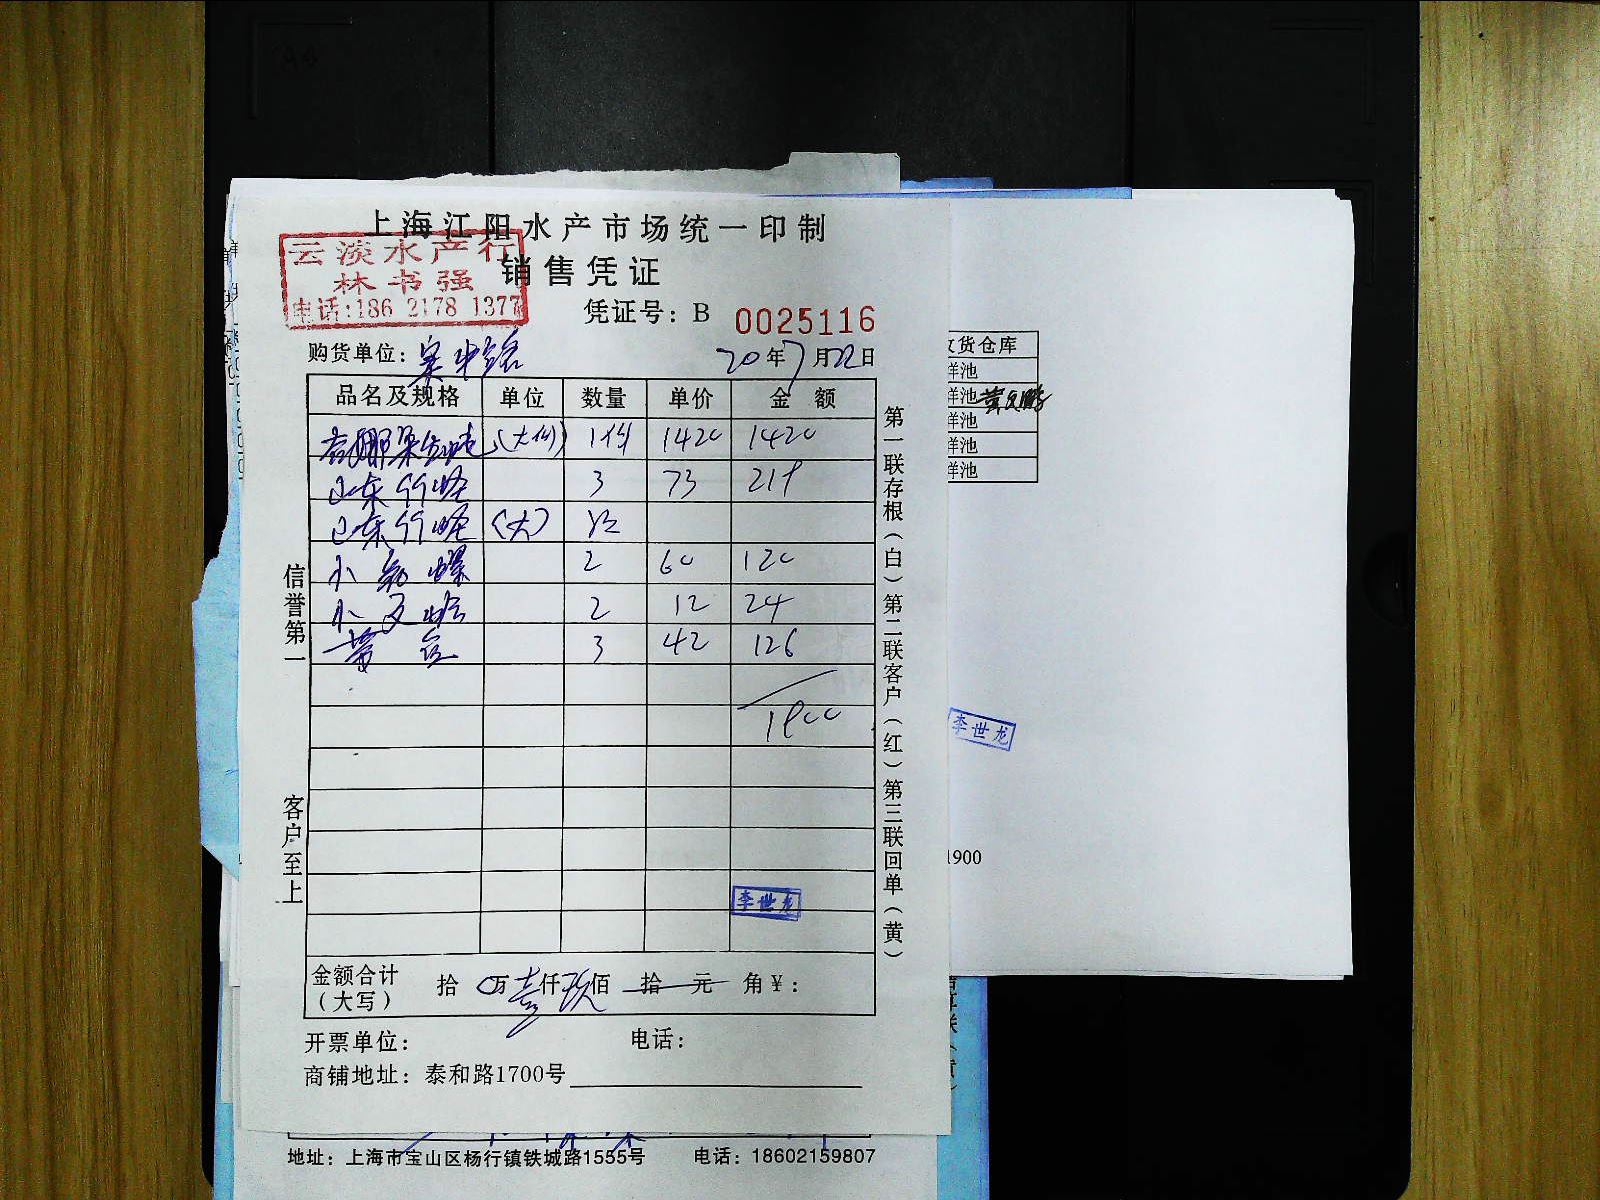 上海江阳水产市场统一印制
云淡水产行
林书强
电话:186 2178 1377
销售凭证
凭证号: B 0025116
购货单位:
20年7月22日
品名及规格 单位 数量 单价 金额
(大份) 1份 1420 1420
山东竹蛏 3 73 219
山东竹蛏 (大)
小 螺 2 60 120
小文蛤 2 12 24
黄 3 42 126
1900
信誉第一
客户至上
第一联存根(白)第二联客户(红)第三联回单(黄)
李世龙
金额合计(大写) 拾 万壹仟玖佰 拾 元 角¥:
开票单位: 电话:
商铺地址: 泰和路1700号
地址: 上海市宝山区杨行镇铁城路1555号 电话: 18602159807
货仓库
样池
样池
样池
样池
样池
李世龙
1900